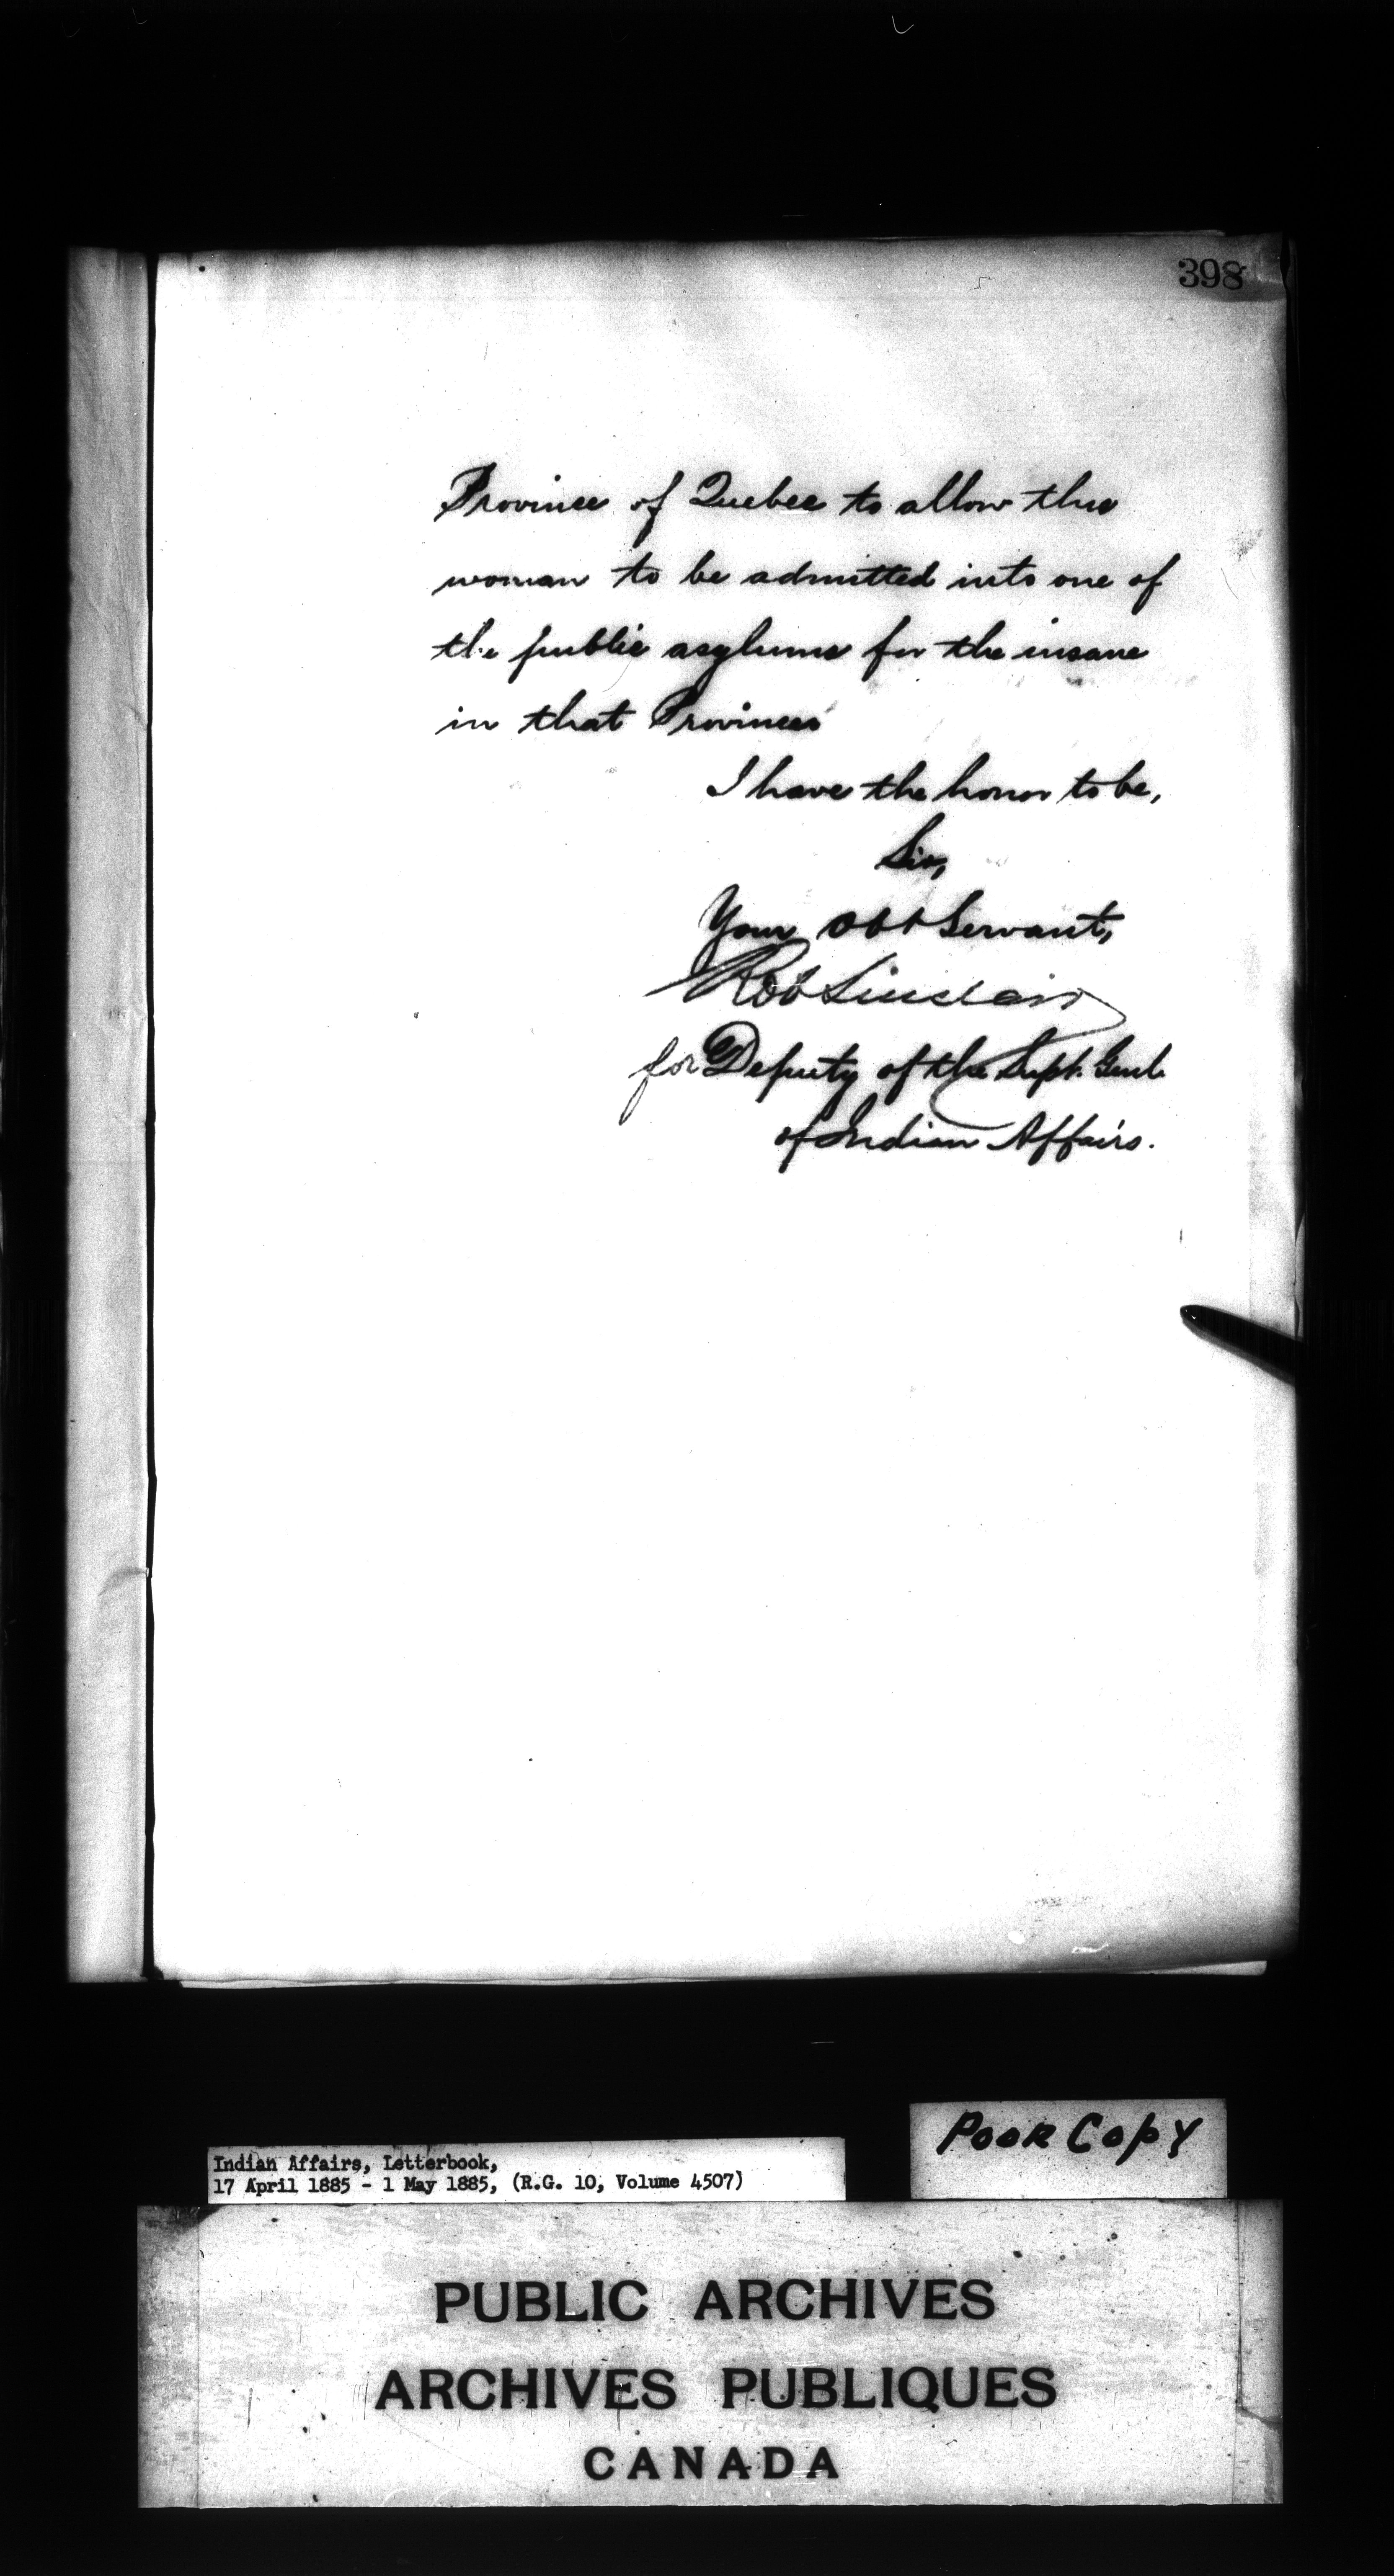 398
Province of Quebec to allow this
woman to be admitted into one of
the public asylums for the insane
in that Province
I have the honor to be,
Sir,
Your Obt Servant,
Rob Sinclair
for Deputy of the Supt. Genl.
of Indian Affairs.
Poor Copy
Indian Affairs, Letterbook,
17 April 1885 - 1 May 1885, (R.G. 10, Volume 4507)
PUBLIC ARCHIVES
ARCHIVES PUBLIQUES
CANADA